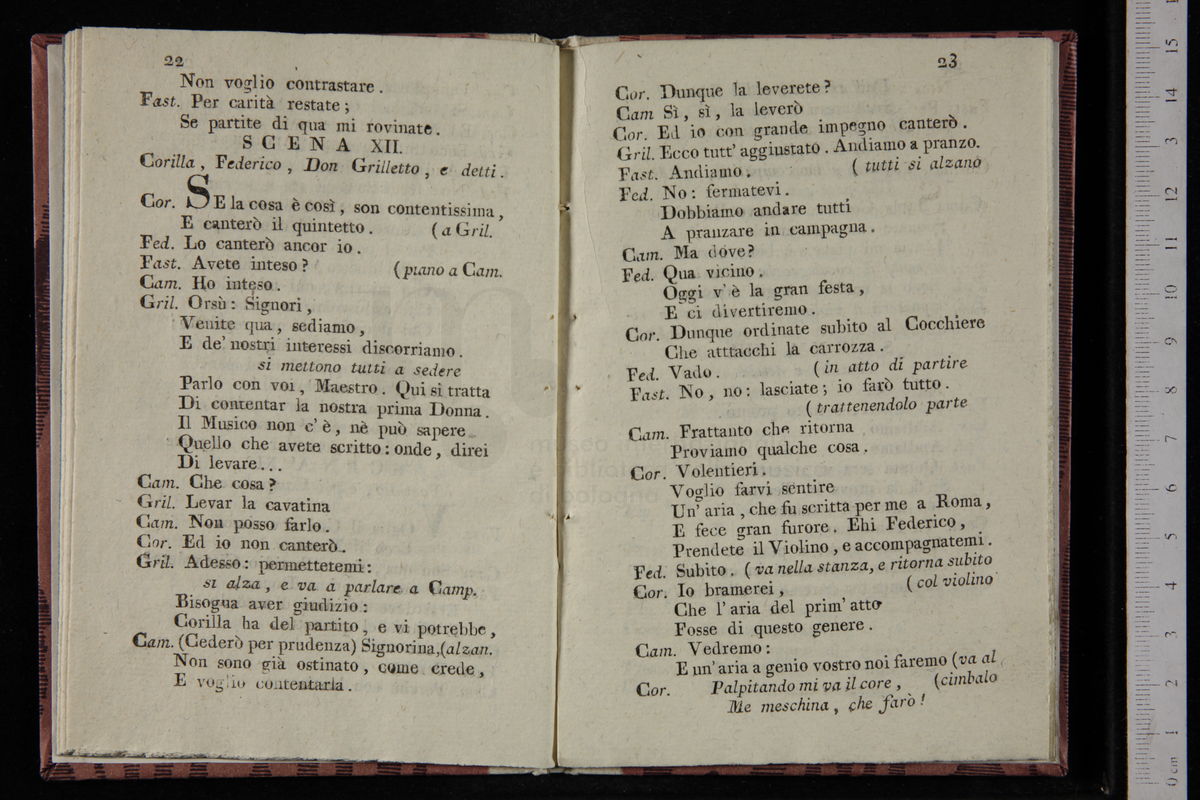 22
Non voglio contrastare.
Fast. Per carità restate;
Se partite di qua mi rovinate.
SCENA XII.
Corilla, Federico, Don Grilletto, e detti.
Cor. SE la cosa è così, son contentissima,
E canterò il quintetto. (a Gril.
Fed. Lo canterò ancor io.
Fast. Avete inteso? (piano a Cam.
Cam. Ho inteso.
Gril. Orsù: Signori,
Venite qua, sediamo,
E de' nostri interessi discorriamo.
si mettono tutti a sedere
Parlo con voi, Maestro. Qui si tratta
Di contentar la nostra prima Donna.
Il Musico non c'è, nè può sapere
Quello che avete scritto: onde, direi
Di levare...
Cam. Che cosa?
Gril. Levar la cavatina
Cam. Non posso farlo.
Cor. Ed io non canterò.
Gril. Adesso: permettetemi:
si alza, e va a parlare a Camp.
Bisogna aver giudizio:
Corilla ha del partito, e vi potrebbe,
Cam. (Cederò per prudenza) Signorina,(alzan.
Non sono già ostinato, come crede,
E voglio contentarla.
23
Cor. Dunque la leverete?
Cam Sì, sì, la leverò
Cor. Ed io con grande impegno canterò.
Gril. Ecco tutt' aggiustato. Andiamo a pranzo.
Fast. Andiamo. (tutti si alzano
Fed. No: fermatevi.
Dobbiamo andare tutti
A pranzare in campagna.
Cam. Ma dove?
Fed. Qua vicino.
Oggi v'è la gran festa,
E ci divertiremo.
Cor. Dunque ordinate subito al Cocchiere
Che atttacchi la carrozza.
Fed. Vado. (in atto di partire
Fast. No, no: lasciate; io farò tutto.
(trattenendolo parte
Cam. Frattanto che ritorna
Proviamo qualche cosa.
Cor. Volentieri.
Voglio farvi sentire
Un' aria, che fu scritta per me a Roma,
E fece gran furore. Ehi Federico,
Prendete il Violino, e accompagnatemi.
Fed. Subito. (va nella stanza, e ritorna subito
Cor. Io bramerei, (col violino
Che l'aria del prim' atto
Fosse di questo genere.
Cam. Vedremo:
E un' aria a genio vostro noi faremo (va al
Cor. Palpitando mi va il core, (cimbalo
Me meschina, che farò!
0 cm 1 2 3 4 5 6 7 8 9 10 11 12 13 14 15